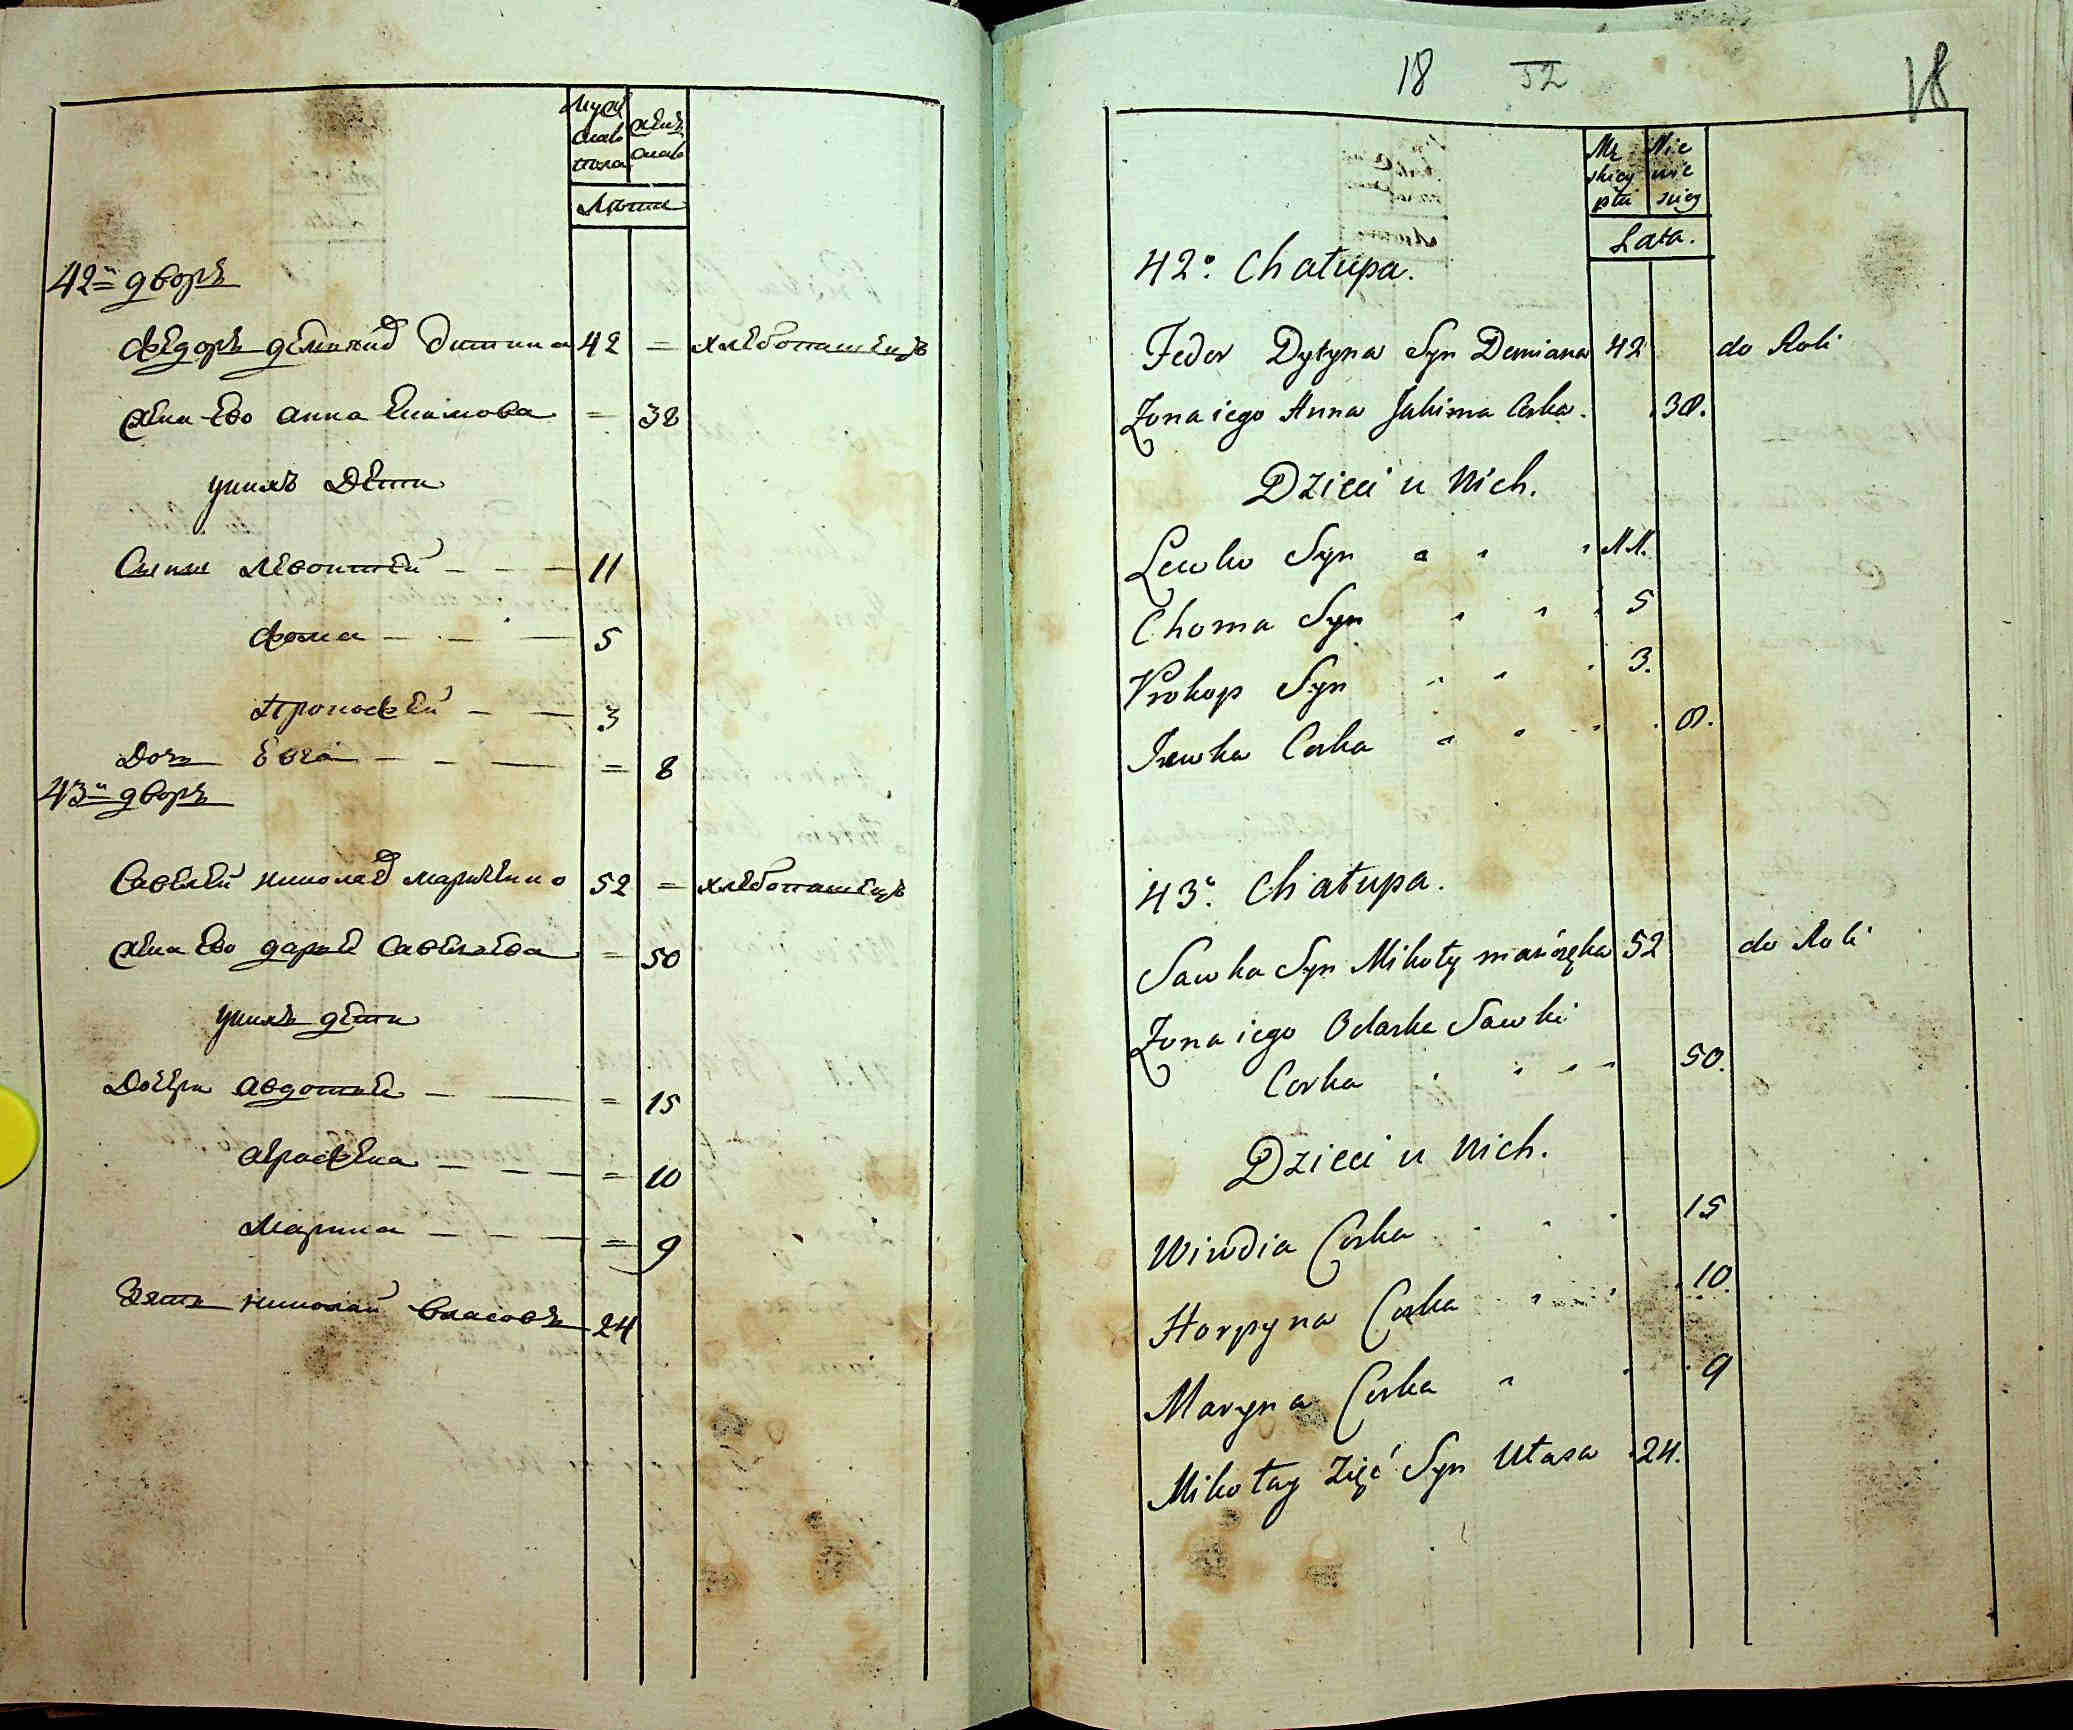 Муж
ска
пола
жен
ска
Лѣта
42й дворъ
Федоръ Демиянов Дитина 42 = хлебопашецъ
жена ево Анна Екимова = 38
у них дети
Сыны Левонтей 11
Фома 5
Прокофей 3
Дочь Евга = 8
43й дворъ
Савелей Николаев 52 = хлебопашецъ
жена ево Дарья Савельева = 50
у них дети
Дочери Авдотья = 15
Аграфена = 10
Марина = 9
Зять Николай Власовъ 24
18 52 18
Mę
skiey
płci
Nie
wie
sciey
Lata.
42° Chałupa.
Fedor Dytyna Syn Demiana 42 do Roli
Żona iego Anna Jakima Corka. 38.
Dzieci u Nich.
Lewko Syn 11.
Choma Syn 5
Prokop Syn 3.
Jewka Corka 8.
43° Chałupa.
Sawka Syn Mikoły 52 do Roli
Żona iego Odarka Sawki
Corka 50.
Dzieci u Nich.
Wiwdia Corka 15
Horpyna Corka 10.
Maryna Corka 9
Mikołay Zięć Syn Ułasa 24.